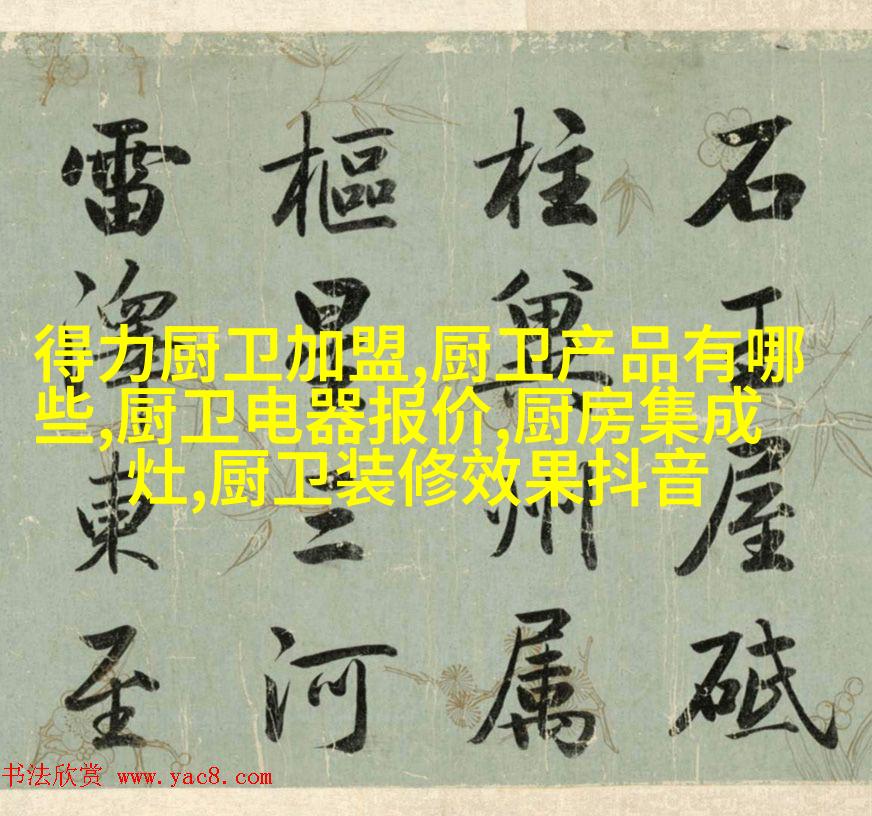 石王屋砥
柱冀州属
樞星三河
雷澤東至
得力厨卫加盟,厨卫产品有哪
些,厨卫电器报价,厨房集成
灶,厨卫装修效果抖音
书法欣赏 www.yac8.com